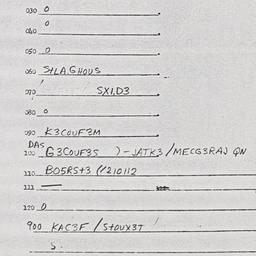 030 0
040 0
050 0
060 StLA.GHOUS
070 SX1,D3
080 0
090 K3COUF3M
DAS
100 G3COUF3S )-JATK3/MECG3RAJ QN
110 BO5RS+3 (/210112
111
120 0
900 KAC3F / StOUX3T
S.